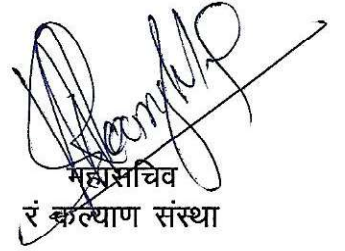 महासचिव
रं कल्याण संस्था